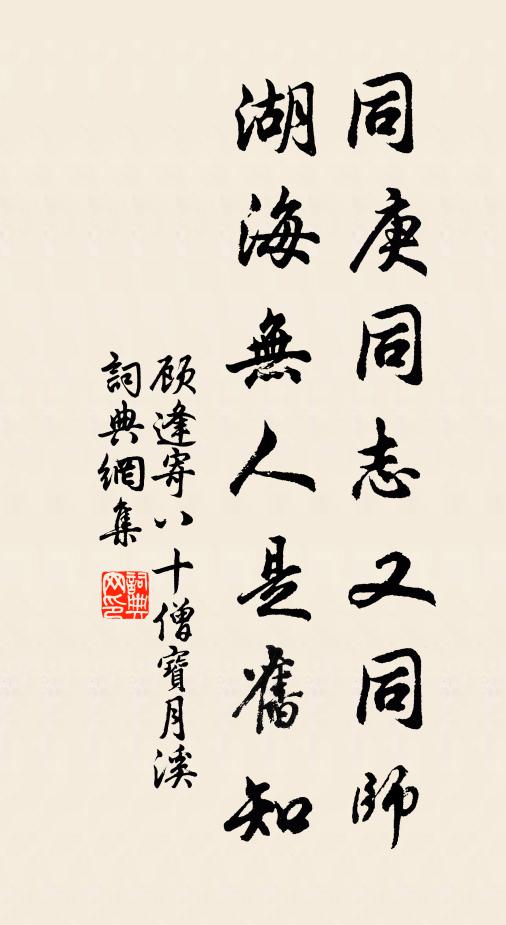 同庚同志又同師
湖海無人是舊知
顾逢寄八十僧寶月溪
詞典網集
詞典网印